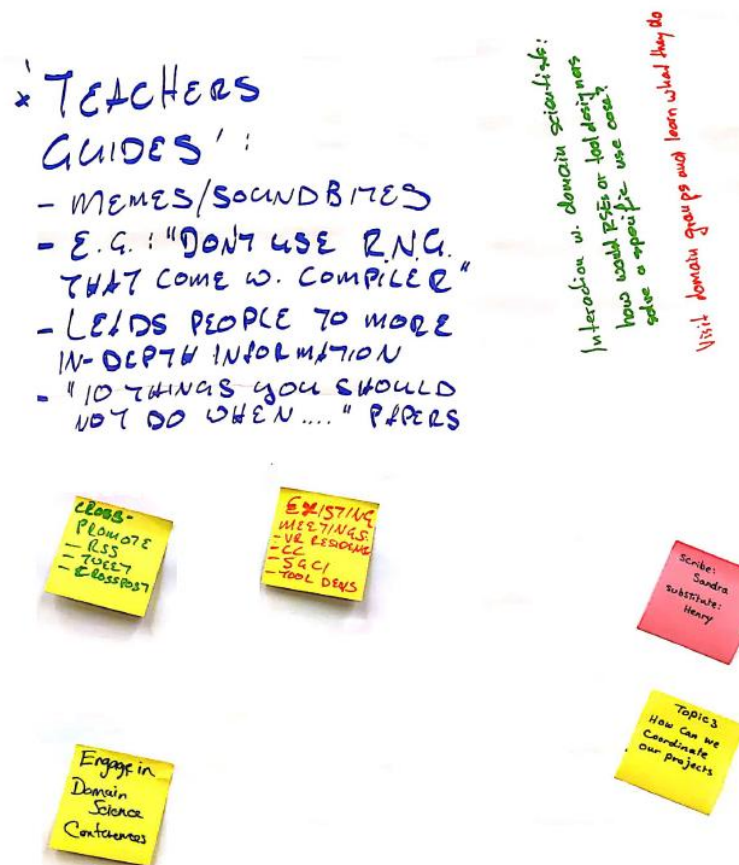 * 'TEACHERS
GUIDES':
- MEMES/SOUNDBITES
- E.G.: "DON'T USE R.N.G.
THAT COME W. COMPILER"
- LEADS PEOPLE TO MORE
IN-DEPTH INFORMATION
- "10 THINGS YOU SHOULD
NOT DO WHEN...." PAPERS
Interaction w. domain scientists:
how would RSEs or tool designers
solve a specific use case?
Visit domain groups and learn what they do
CROSS-
PROMOTE
- RSS
- TWEET
- CROSSPOST
EXISTING
MEETINGS:
- VR
- CC
- SGCI
- TOOL DEVS
Scribe:
Sandra
Substitute:
Henry
Topic 3
How Can we
Coordinate
our projects
Engage in
Domain
Science
Conferences